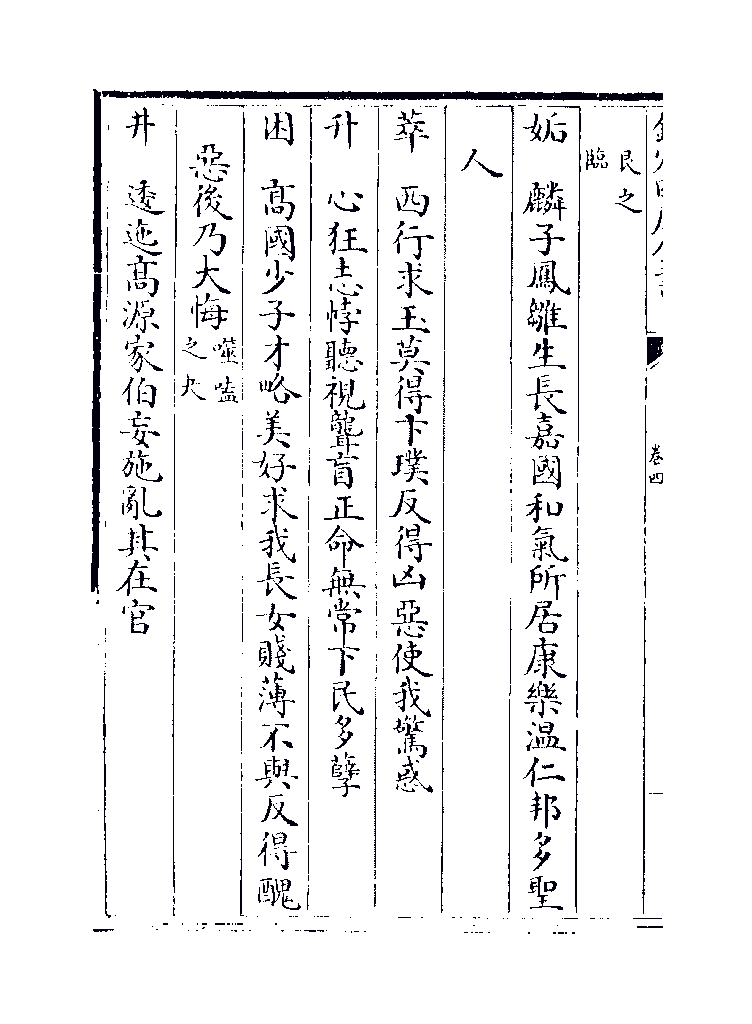 艮之
臨
姤　麟子鳳雛生長嘉國和氣所居康樂溫仁邦多聖
人
萃　西行求玉莫得卞璞反得凶惡使我驚惑
升　心狂志悖聽視聾盲正命無常下民多孽
困　高國少子才略美好求我長女賤薄不與反得醜
惡後乃大悔噬嗑
之夬
井　逶迤高源家伯妄施亂其在官
卷四